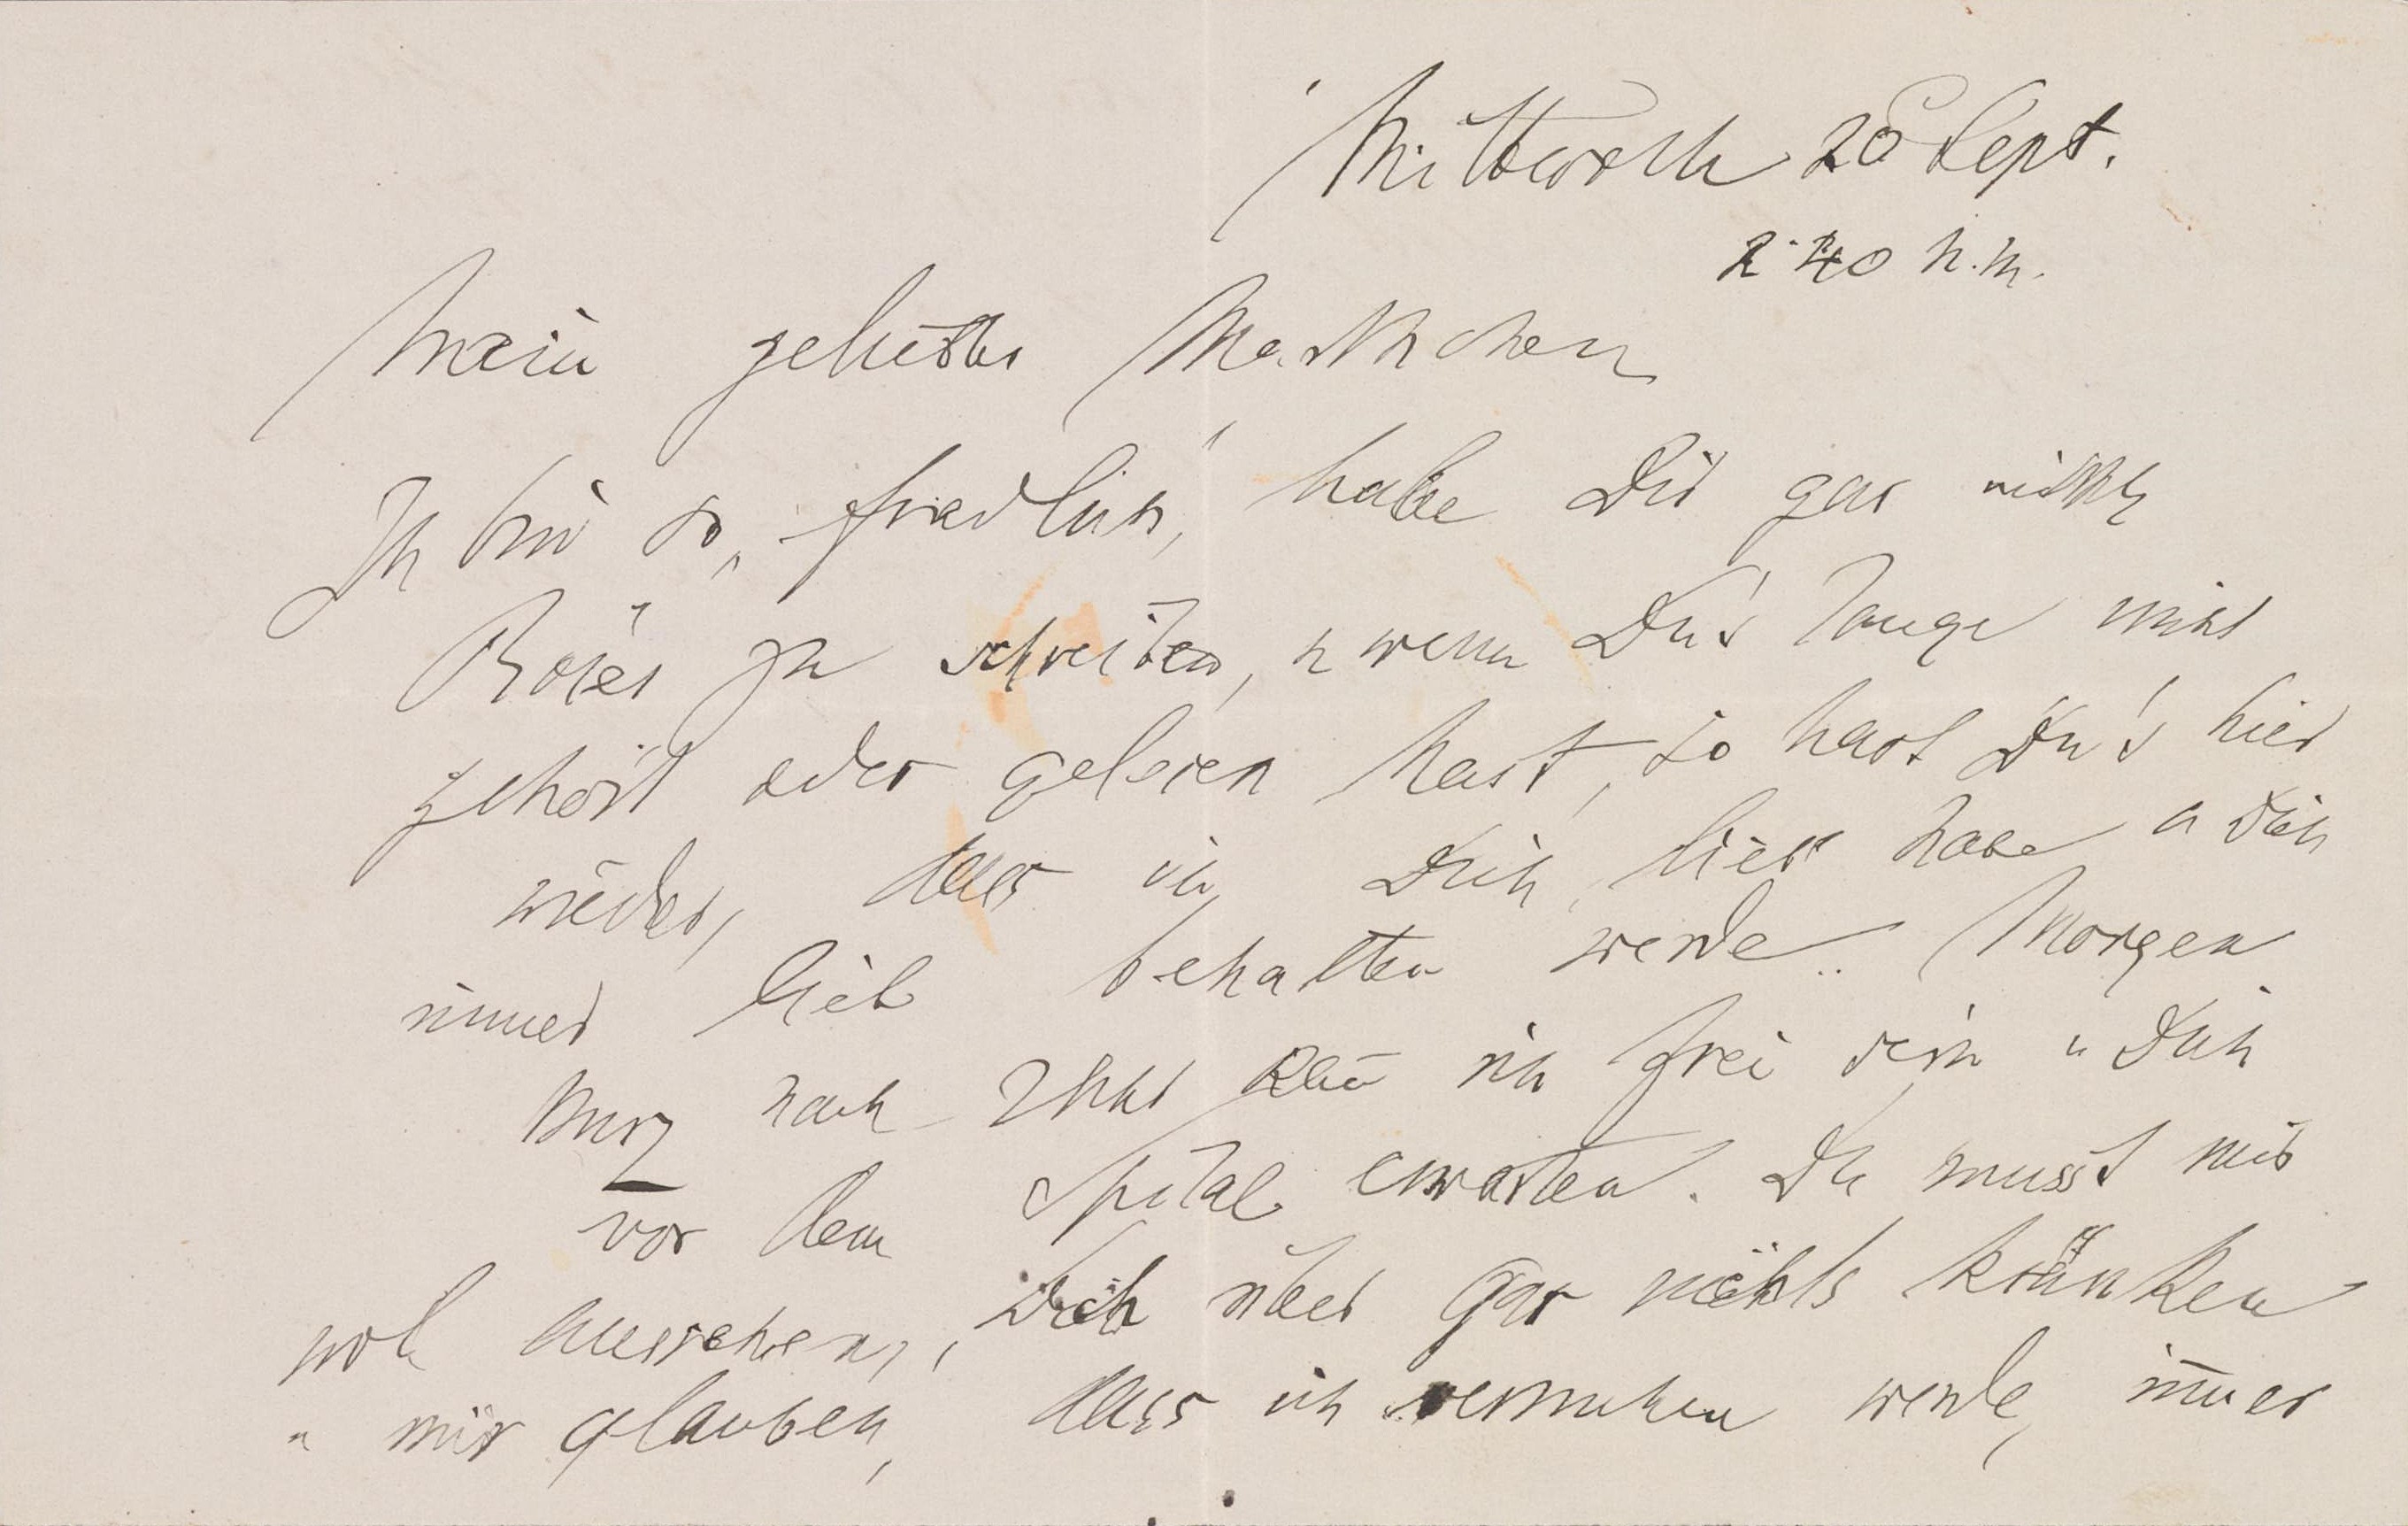 Mittwoch 20 Sept.
2.40 N.M.
Mein geliebtes Marthchen
Ich bin so „friedlich“, habe Dir gar nichts
Böses zu schreiben, u wenn Du's lange nicht
gehört oder gelesen hast, so hast Du's hier
wieder, dass ich Dich lieb habe u Dich
immer lieb behalten werde. Morgen
kurz nach 2 Uhr kann ich frei sein u Dich
vor dem Spital erwarten. Du musst mir
wol aussehen, Dich über gar nichts kränken
u mir glauben, dass ich versuchen werde, im̅er